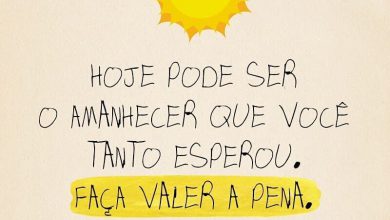 HOJE PODE SER
O AMANHECER QUE VOCÊ
TANTO ESPEROU.
FAÇA VALER A PENA.